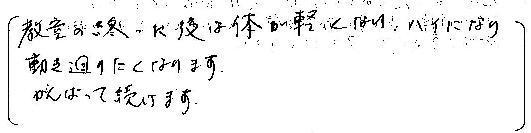 教室が終った後は体が軽くなり、ハイになり
動き廻りたくなります。
がんばって続けます。